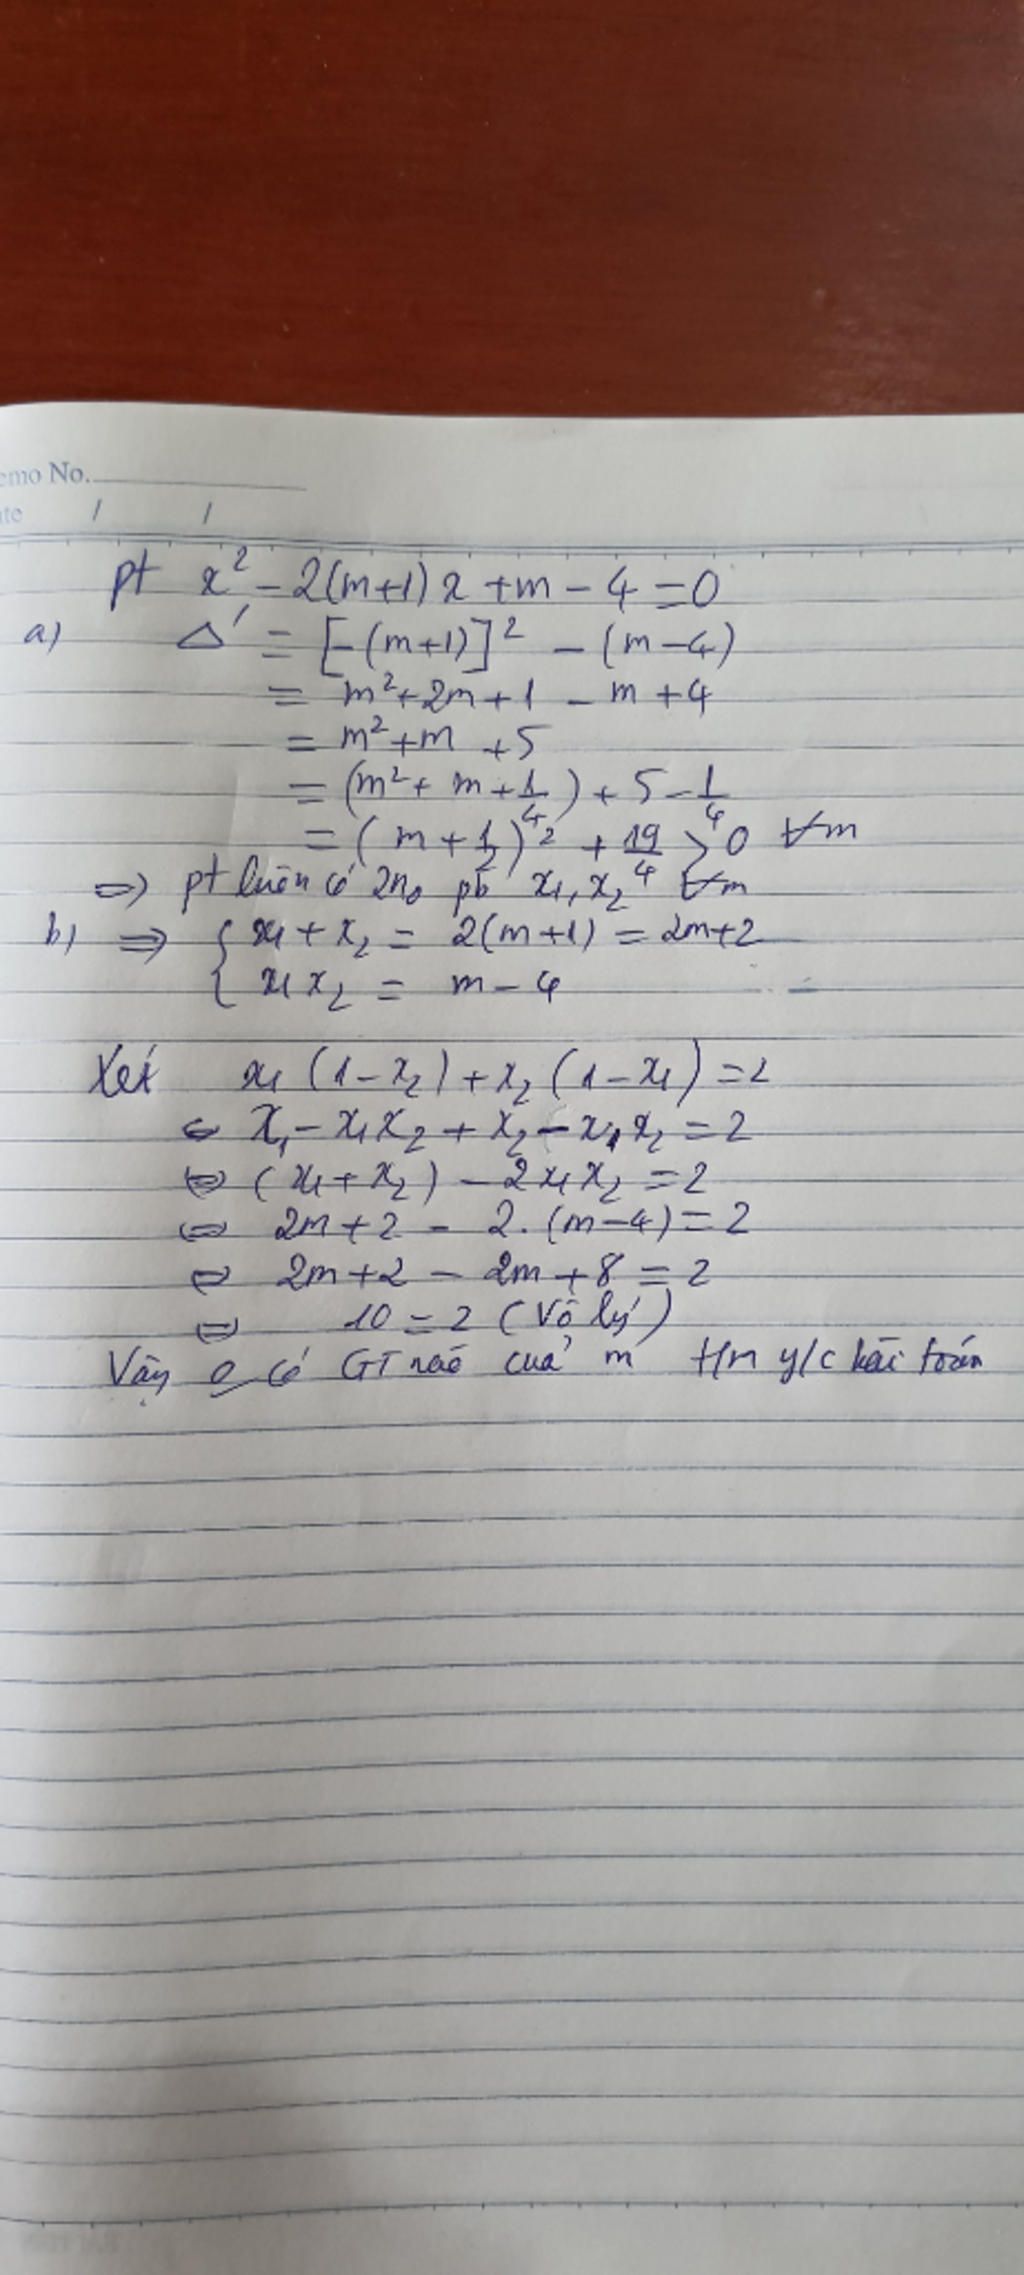 emo No.
te / /
pt x² - 2(m+1)x + m - 4 = 0
a) Δ' = [-(m+1)]² - (m-4)
= m² + 2m + 1 - m + 4
= m² + m + 5
= (m² + m + 1/4) + 5 - 1/4
= (m + 1/2)² + 19/4 > 0 ∀m
=> pt luôn có 2n₀ pb x₁, x₂ ∀m
b) => { x₁ + x₂ = 2(m+1) = 2m+2
x₁x₂ = m - 4
Xét x₁(1-x₂) + x₂(1-x₁) = 2
⇔ x₁ - x₁x₂ + x₂ - x₁x₂ = 2
⇔ (x₁ + x₂) - 2x₁x₂ = 2
⇔ 2m + 2 - 2.(m-4) = 2
⇔ 2m + 2 - 2m + 8 = 2
⇔ 10 = 2 (Vô lý)
Vậy 0 có GT nào của m t/m y/c bài toán